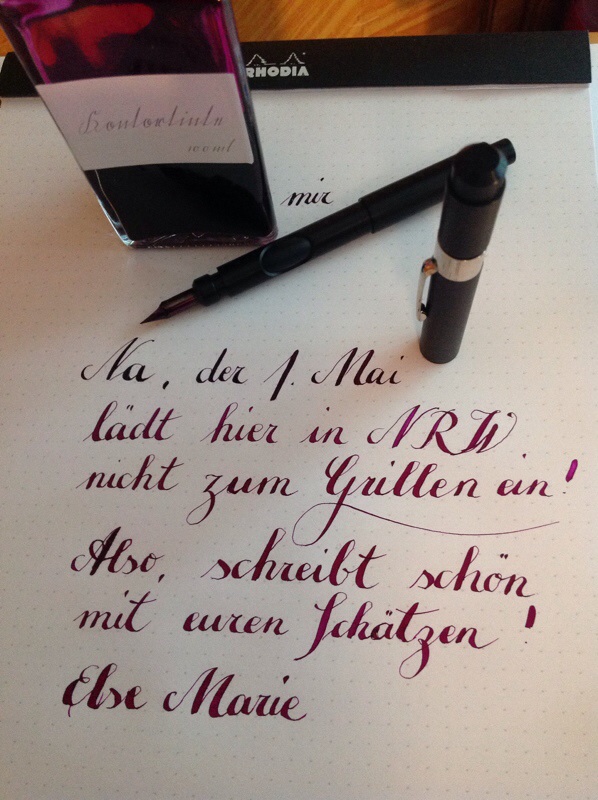 RHODIA
Kontortinte
100 ml
mir
Na, der 1. Mai
lädt hier in NRW
nicht zum Grillen ein!
Also, schreibt schön
mit euren Schätzen!
Else Marie